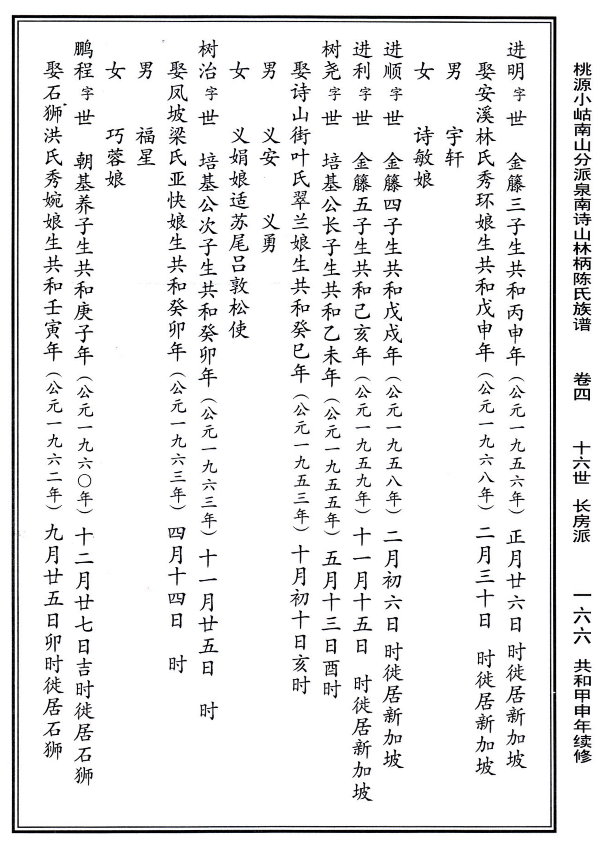 桃源小岵南山分派泉南诗山林柄陈氏族谱 卷四 十六世 长房派 一六六 共和甲申年续修
进明字 世 金籐三子生共和丙申年（公元一九五六年）正月廿六日 时徙居新加坡
娶安溪林氏秀环娘生共和戊申年（公元一九六八年）二月三十日 时徙居新加坡
男 宇轩
女 诗敏娘
进顺字 世 金籐四子生共和戊戍年（公元一九五八年）二月初六日 时徙居新加坡
进利字 世 金籐五子生共和己亥年（公元一九五九年）十一月十五日 时徙居新加坡
树尧字 世 培基公长子生共和乙未年（公元一九五五年）五月十三日酉时
娶诗山街叶氏翠兰娘生共和癸巳年（公元一九五三年）十月初十日亥时
男 义安 义勇
女 义娟娘适苏尾吕敦松使
树治字 世 培基公次子生共和癸卯年（公元一九六三年）十一月廿五日 时
娶凤坡梁氏亚快娘生共和癸卯年（公元一九六三年）四月十四日 时
男 福星
女 巧蓉娘
鹏程字 世 朝基养子生共和庚子年（公元一九六〇年）十二月廿七日吉时徙居石狮
娶石狮洪氏秀婉娘生共和壬寅年（公元一九六二年）九月廿五日卯时徙居石狮